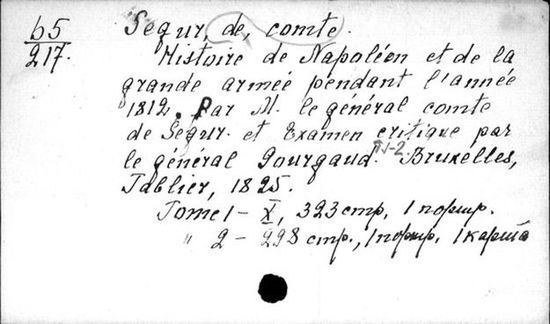 б5
217.
Segur, de, comte.
Histoire de Napoléon et de la
grande armée pendant l'année
1812. Par M. le général comte
de Segur. et Examen critique par
le général Gourgaud. T 1-2. Bruxelles,
Tablier, 1825.
Tome 1 - X, 323 стр, 1 портр.
" 2 - 298 стр., 1 портр. 1 карта